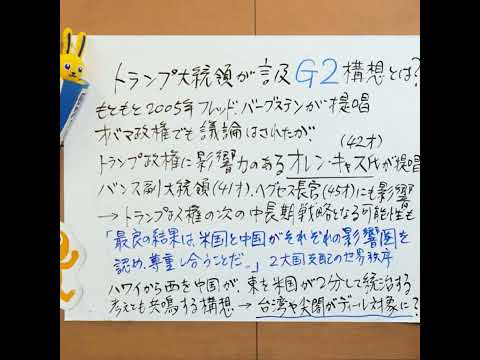 トランプ大統領が言及G2構想とは?
もともと2005年フレッド・バーグステンが提唱
オバマ政権でも議論はされたが、
(42才)
トランプ政権に影響力のあるオレン・キャス氏が提唱
バンス副大統領(41才)、ヘグセス長官(45才)にも影響
→トランプ政権の次の中長期戦略となる可能性も
「最良の結果は、米国と中国がそれぞれの影響圏を
認め、尊重し合うことだ…」2大国支配の世界秩序
ハワイから西を中国が、東を米国が2分して統治する
考えとも共鳴する構想→台湾や尖閣がディール対象に?